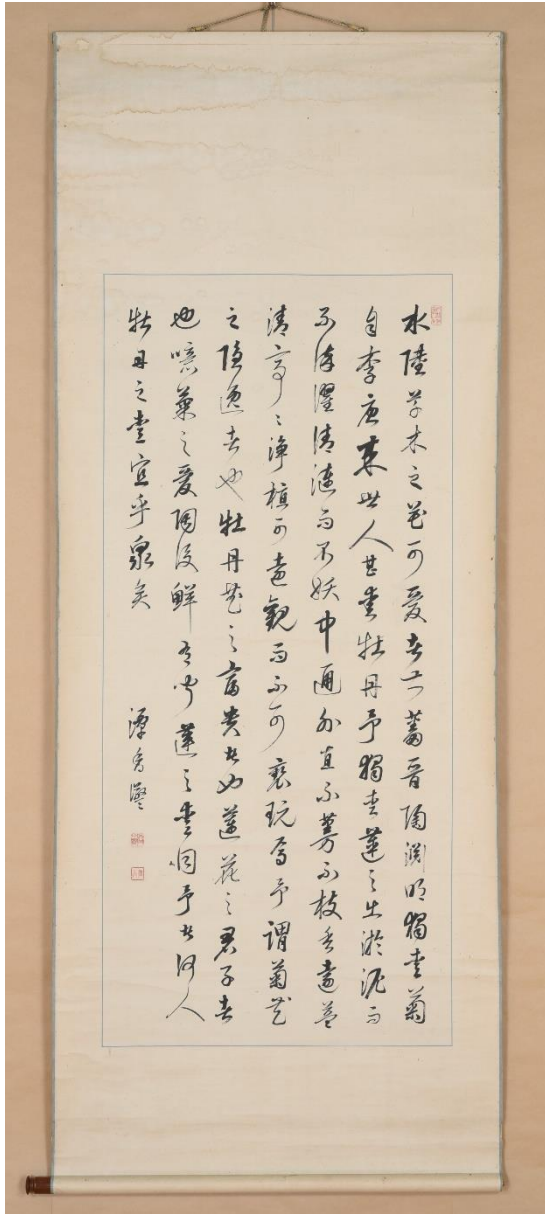 水陸草木之花可愛者甚蕃晉陶淵明獨愛菊
自李唐來世人甚愛牡丹予獨愛蓮之出淤泥而
不染濯清漣而不妖中通外直不蔓不枝香遠益
清亭々淨植可遠觀而不可褻玩焉予謂菊花
之隱逸者也牡丹花之富貴者也蓮花之君子者
也噫菊之愛陶後鮮有聞蓮之愛同予者何人
牡丹之愛宜乎衆矣